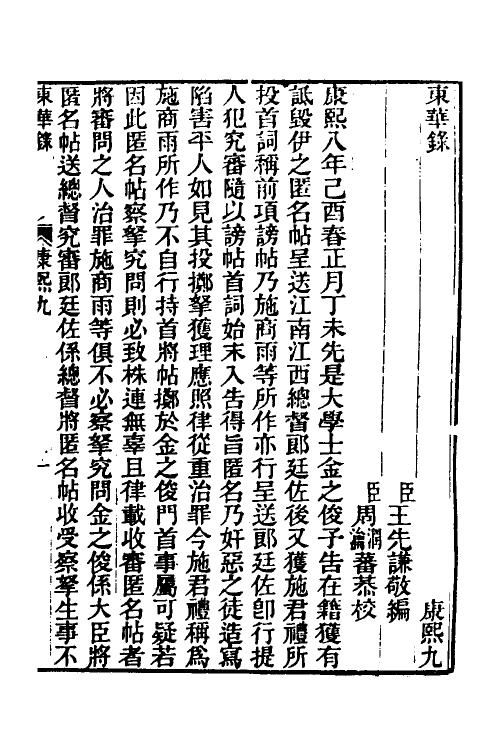 東華錄　康熙九
臣王先謙敬編
臣周潤蕃周瀹蕃恭校
康熙八年己酉春正月丁未先是大學士金之俊予告在籍獲有
詆毀伊之匿名帖呈送江南江西總督郎廷佐後又獲施君禮所
投首詞稱前項謗帖乃施商雨等所作亦行呈送郎廷佐卽行提
人犯究審隨以謗帖首詞始末入告得旨匿名乃奸惡之徒造寫
陷害平人如見其投擲拏獲理應照律從重治罪今施君禮稱爲
施商雨所作乃不自行持首將帖擲於金之俊門首事屬可疑若
因此匿名帖察拏究問則必致株連無辜且律載收審匿名帖者
將審問之人治罪施商雨等俱不必察拏究問金之俊係大臣將
匿名帖送總督究審郎廷佐係總督將匿名帖收受察拏生事不
東華錄　康熙九　一